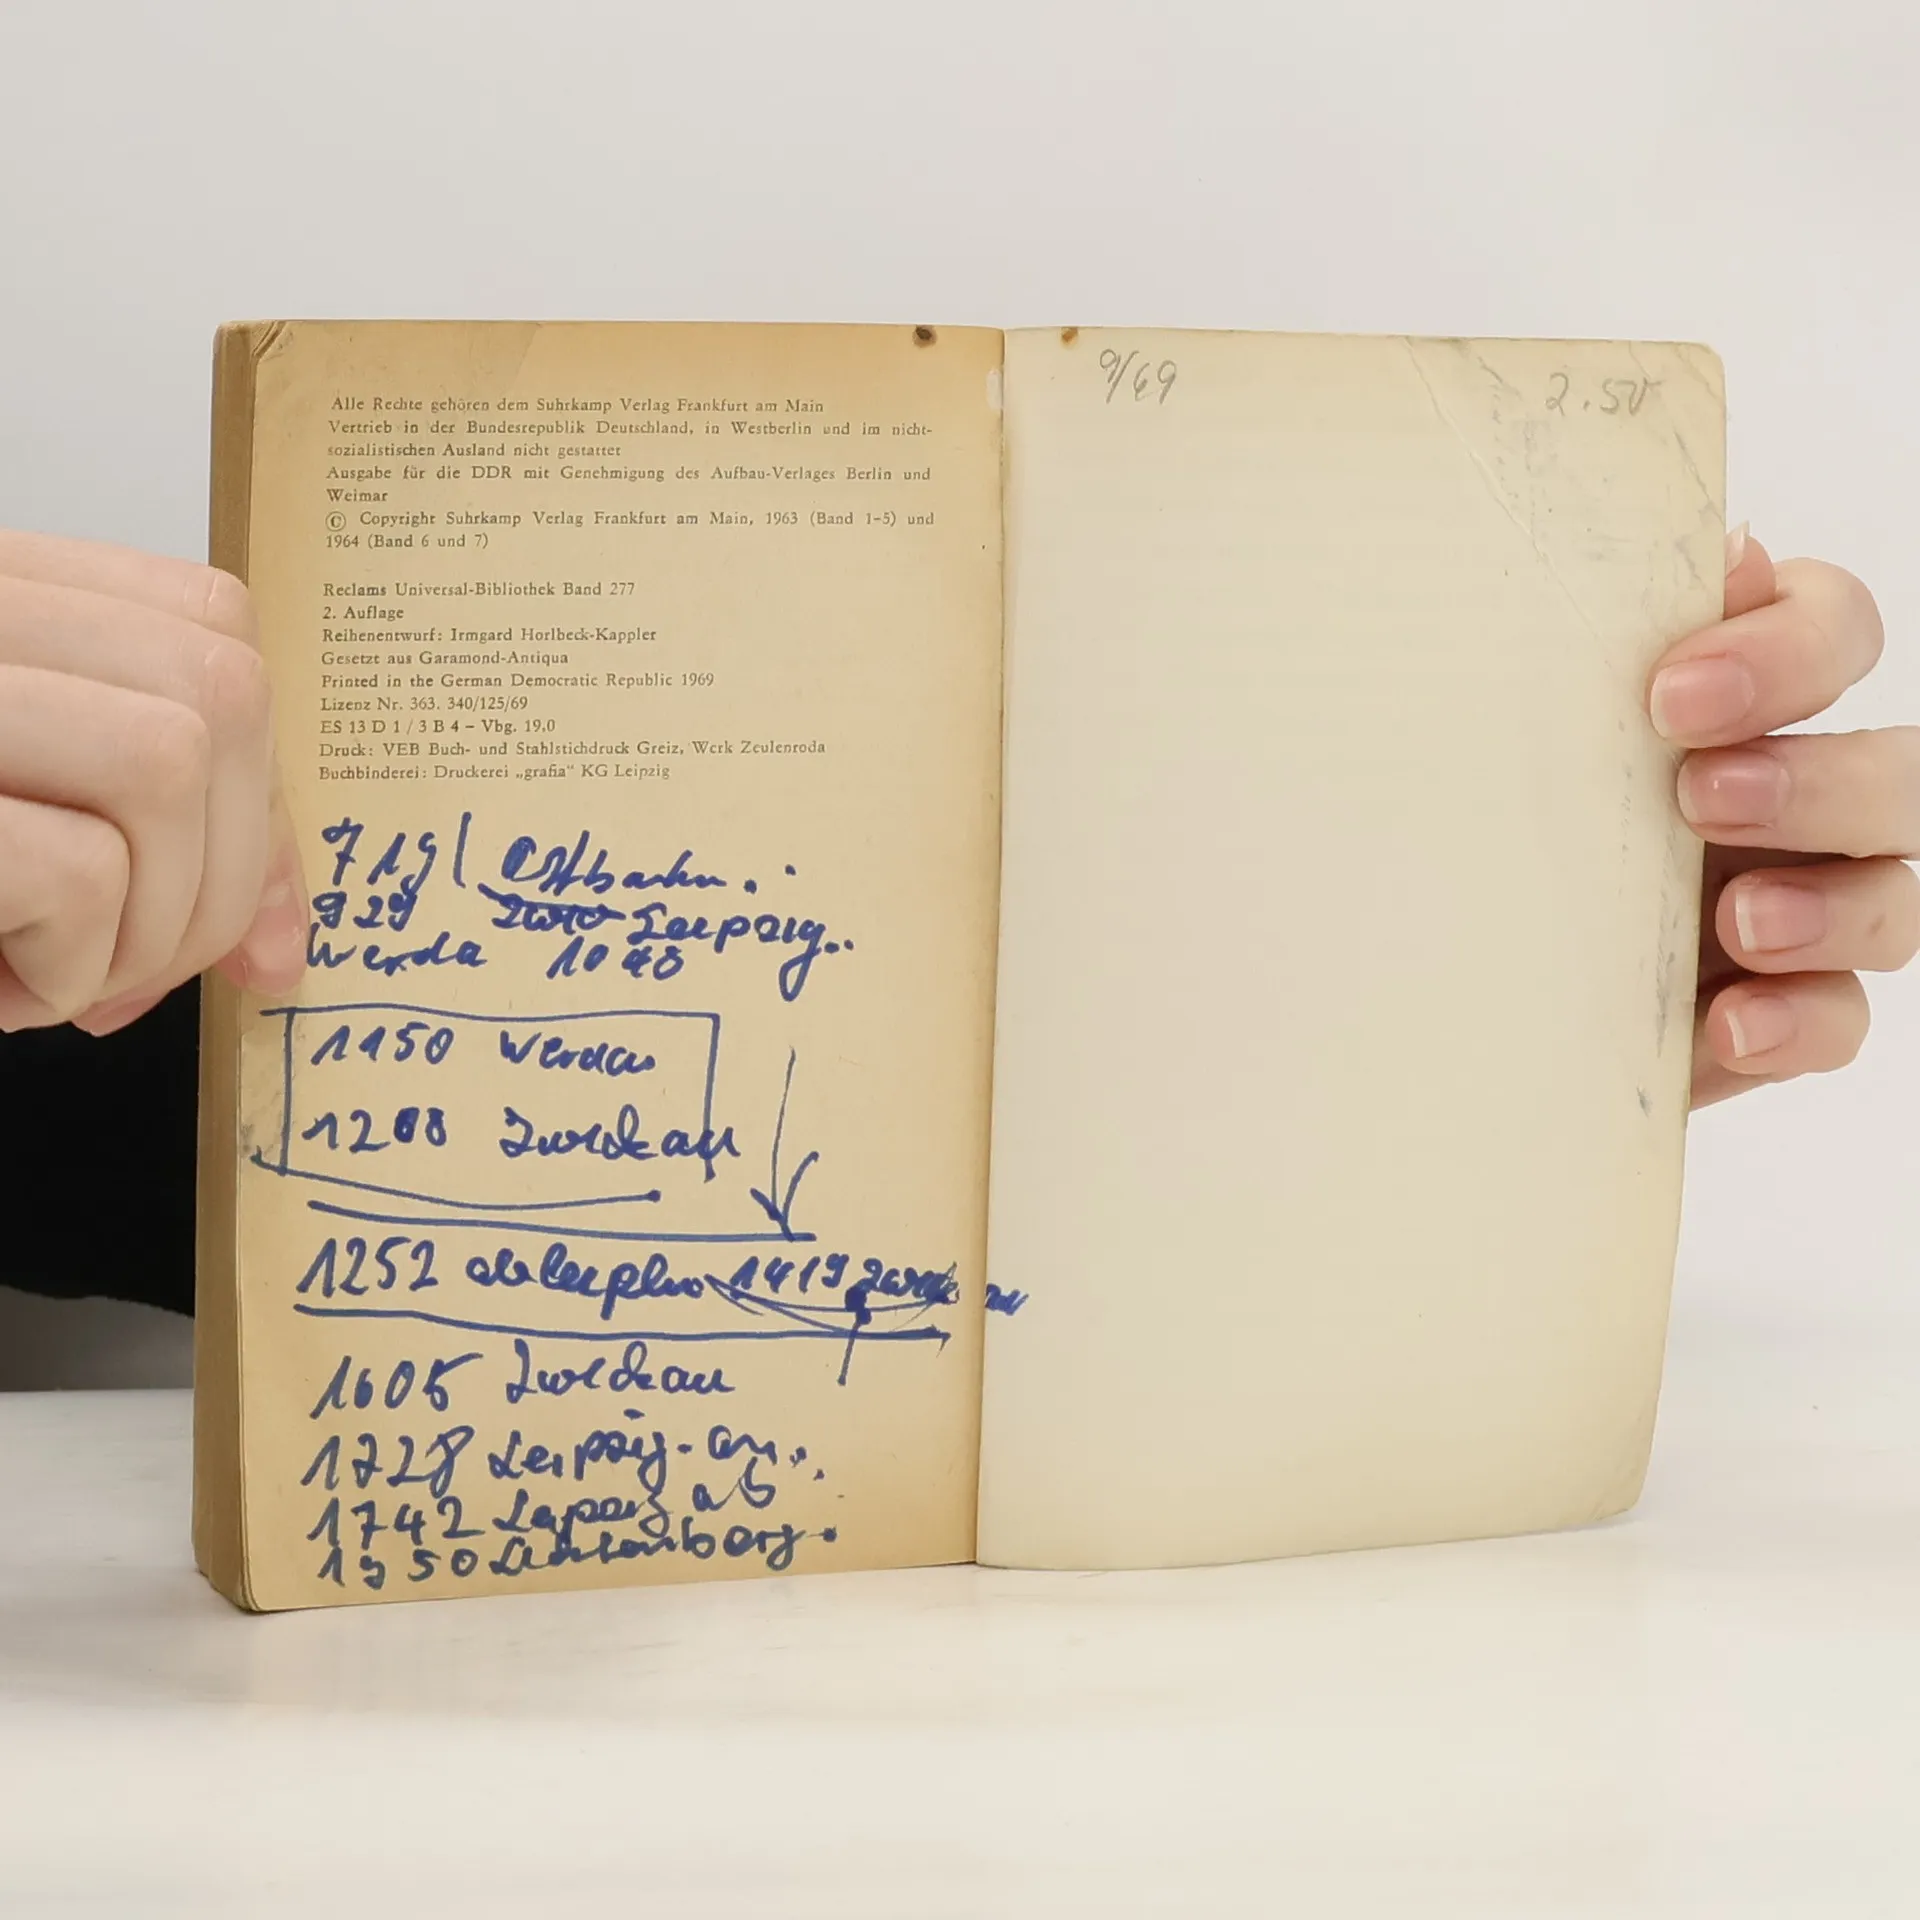 Alle Rechte gehören dem Suhrkamp Verlag Frankfurt am Main
Vertrieb in der Bundesrepublik Deutschland, in Westberlin und im nicht-
sozialistischen Ausland nicht gestattet
Ausgabe für die DDR mit Genehmigung des Aufbau-Verlages Berlin und
Weimar
© Copyright Suhrkamp Verlag Frankfurt am Main, 1963 (Band 1–5) und
1964 (Band 6 und 7)
Reclams Universal-Bibliothek Band 277
2. Auflage
Reihenentwurf: Irmgard Horlbeck-Kappler
Gesetzt aus Garamond-Antiqua
Printed in the German Democratic Republic 1969
Lizenz Nr. 363. 340/125/69
ES 13 D 1 / 3 B 4 – Vbg. 19,0
Druck: VEB Buch- und Stahlstichdruck Greiz, Werk Zeulenroda
Buchbinderei: Druckerei „grafia“ KG Leipzig
719
929 Leipzig..
Werda 1048
1150 Werdau
Zwickau
1252 1419
1605 Zwickau
1728 Leipzig - an..
1742 Leipzig ab
1950
9/69
2.50